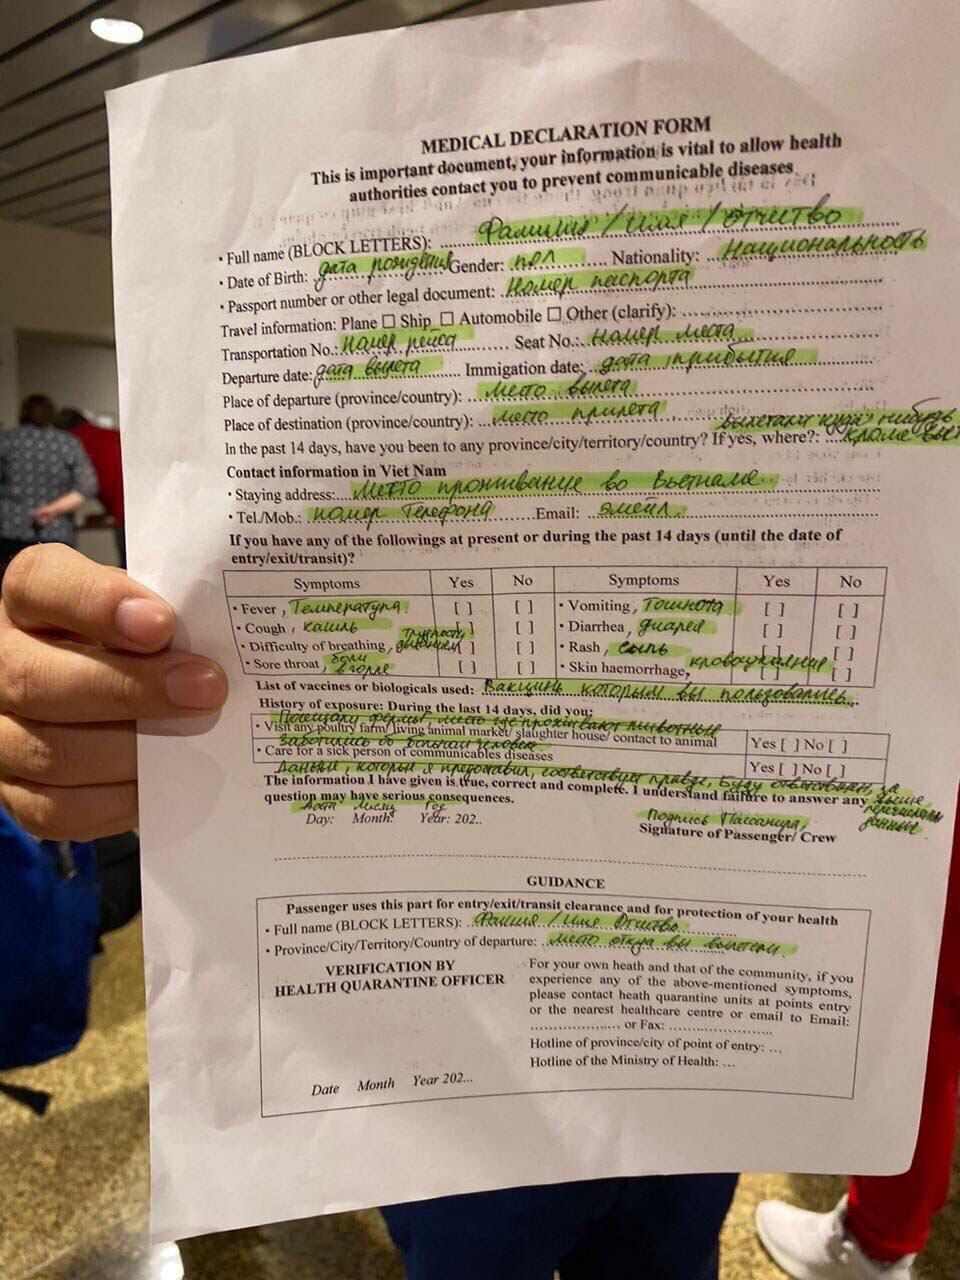 MEDICAL DECLARATION FORM
This is important document, your information is vital to allow health
authorities contact you to prevent communicable diseases
• Full name (BLOCK LETTERS): Фамилия / имя / отчество
• Date of Birth: дата рождения Gender: пол Nationality: Национальность
• Passport number or other legal document: Номер паспорта
Travel information: Plane ☐ Ship ☐ Automobile ☐ Other (clarify):
Transportation No.: номер рейса Seat No.: номер места
Departure date: дата вылета Immigation date: дата прибытия
Place of departure (province/country): место вылета
Place of destination (province/country): место прилета
вылетали куда нибудь
In the past 14 days, have you been to any province/city/territory/country? If yes, where?: кроме
Contact information in Viet Nam
• Staying address: Место проживание во Вьетнаме
• Tel./Mob.: номер телефона Email: эмейл
If you have any of the followings at present or during the past 14 days (until the date of
entry/exit/transit)?
Symptoms Yes No Symptoms Yes No
• Fever, Температура [ ] [ ] • Vomiting, Тошнота [ ] [ ]
• Cough, кашль [ ] [ ] • Diarrhea, диарея [ ] [ ]
• Difficulty of breathing, трудность дыхания [ ] [ ] • Rash, сыпь [ ] [ ]
• Sore throat, боли в горле [ ] [ ] • Skin haemorrhage, [ ] [ ]
List of vaccines or biologicals used: Вакцины которыми вы пользовались
History of exposure: During the last 14 days, did you:
Посещали фермы, место где проживают животные
• Visit any poultry farm/ living animal market/ slaughter house/ contact to animal Yes [ ] No [ ]
Заботились о больном человеке
• Care for a sick person of communicables diseases Yes [ ] No [ ]
Данные, которые я предоставил, соответствует правде, Буду за
The information I have given is true, correct and complete. I understand failure to answer any выше
question may have serious consequences. данные
Месяц Год
Day: Month: Year: 202..
Подпись Пассажира
Signature of Passenger/ Crew
GUIDANCE
Passenger uses this part for entry/exit/transit clearance and for protection of your health
• Full name (BLOCK LETTERS): Фамилия / Имя Отчество
• Province/City/Territory/Country of departure: место откуда вы вылетели
VERIFICATION BY
HEALTH QUARANTINE OFFICER
For your own heath and that of the community, if you
experience any of the above-mentioned symptoms,
please contact heath quarantine units at points entry
or the nearest healthcare centre or email to Email:
.................... or Fax: ......................
Hotline of province/city of point of entry: ...
Hotline of the Ministry of Health: ...
Date Month Year 202...